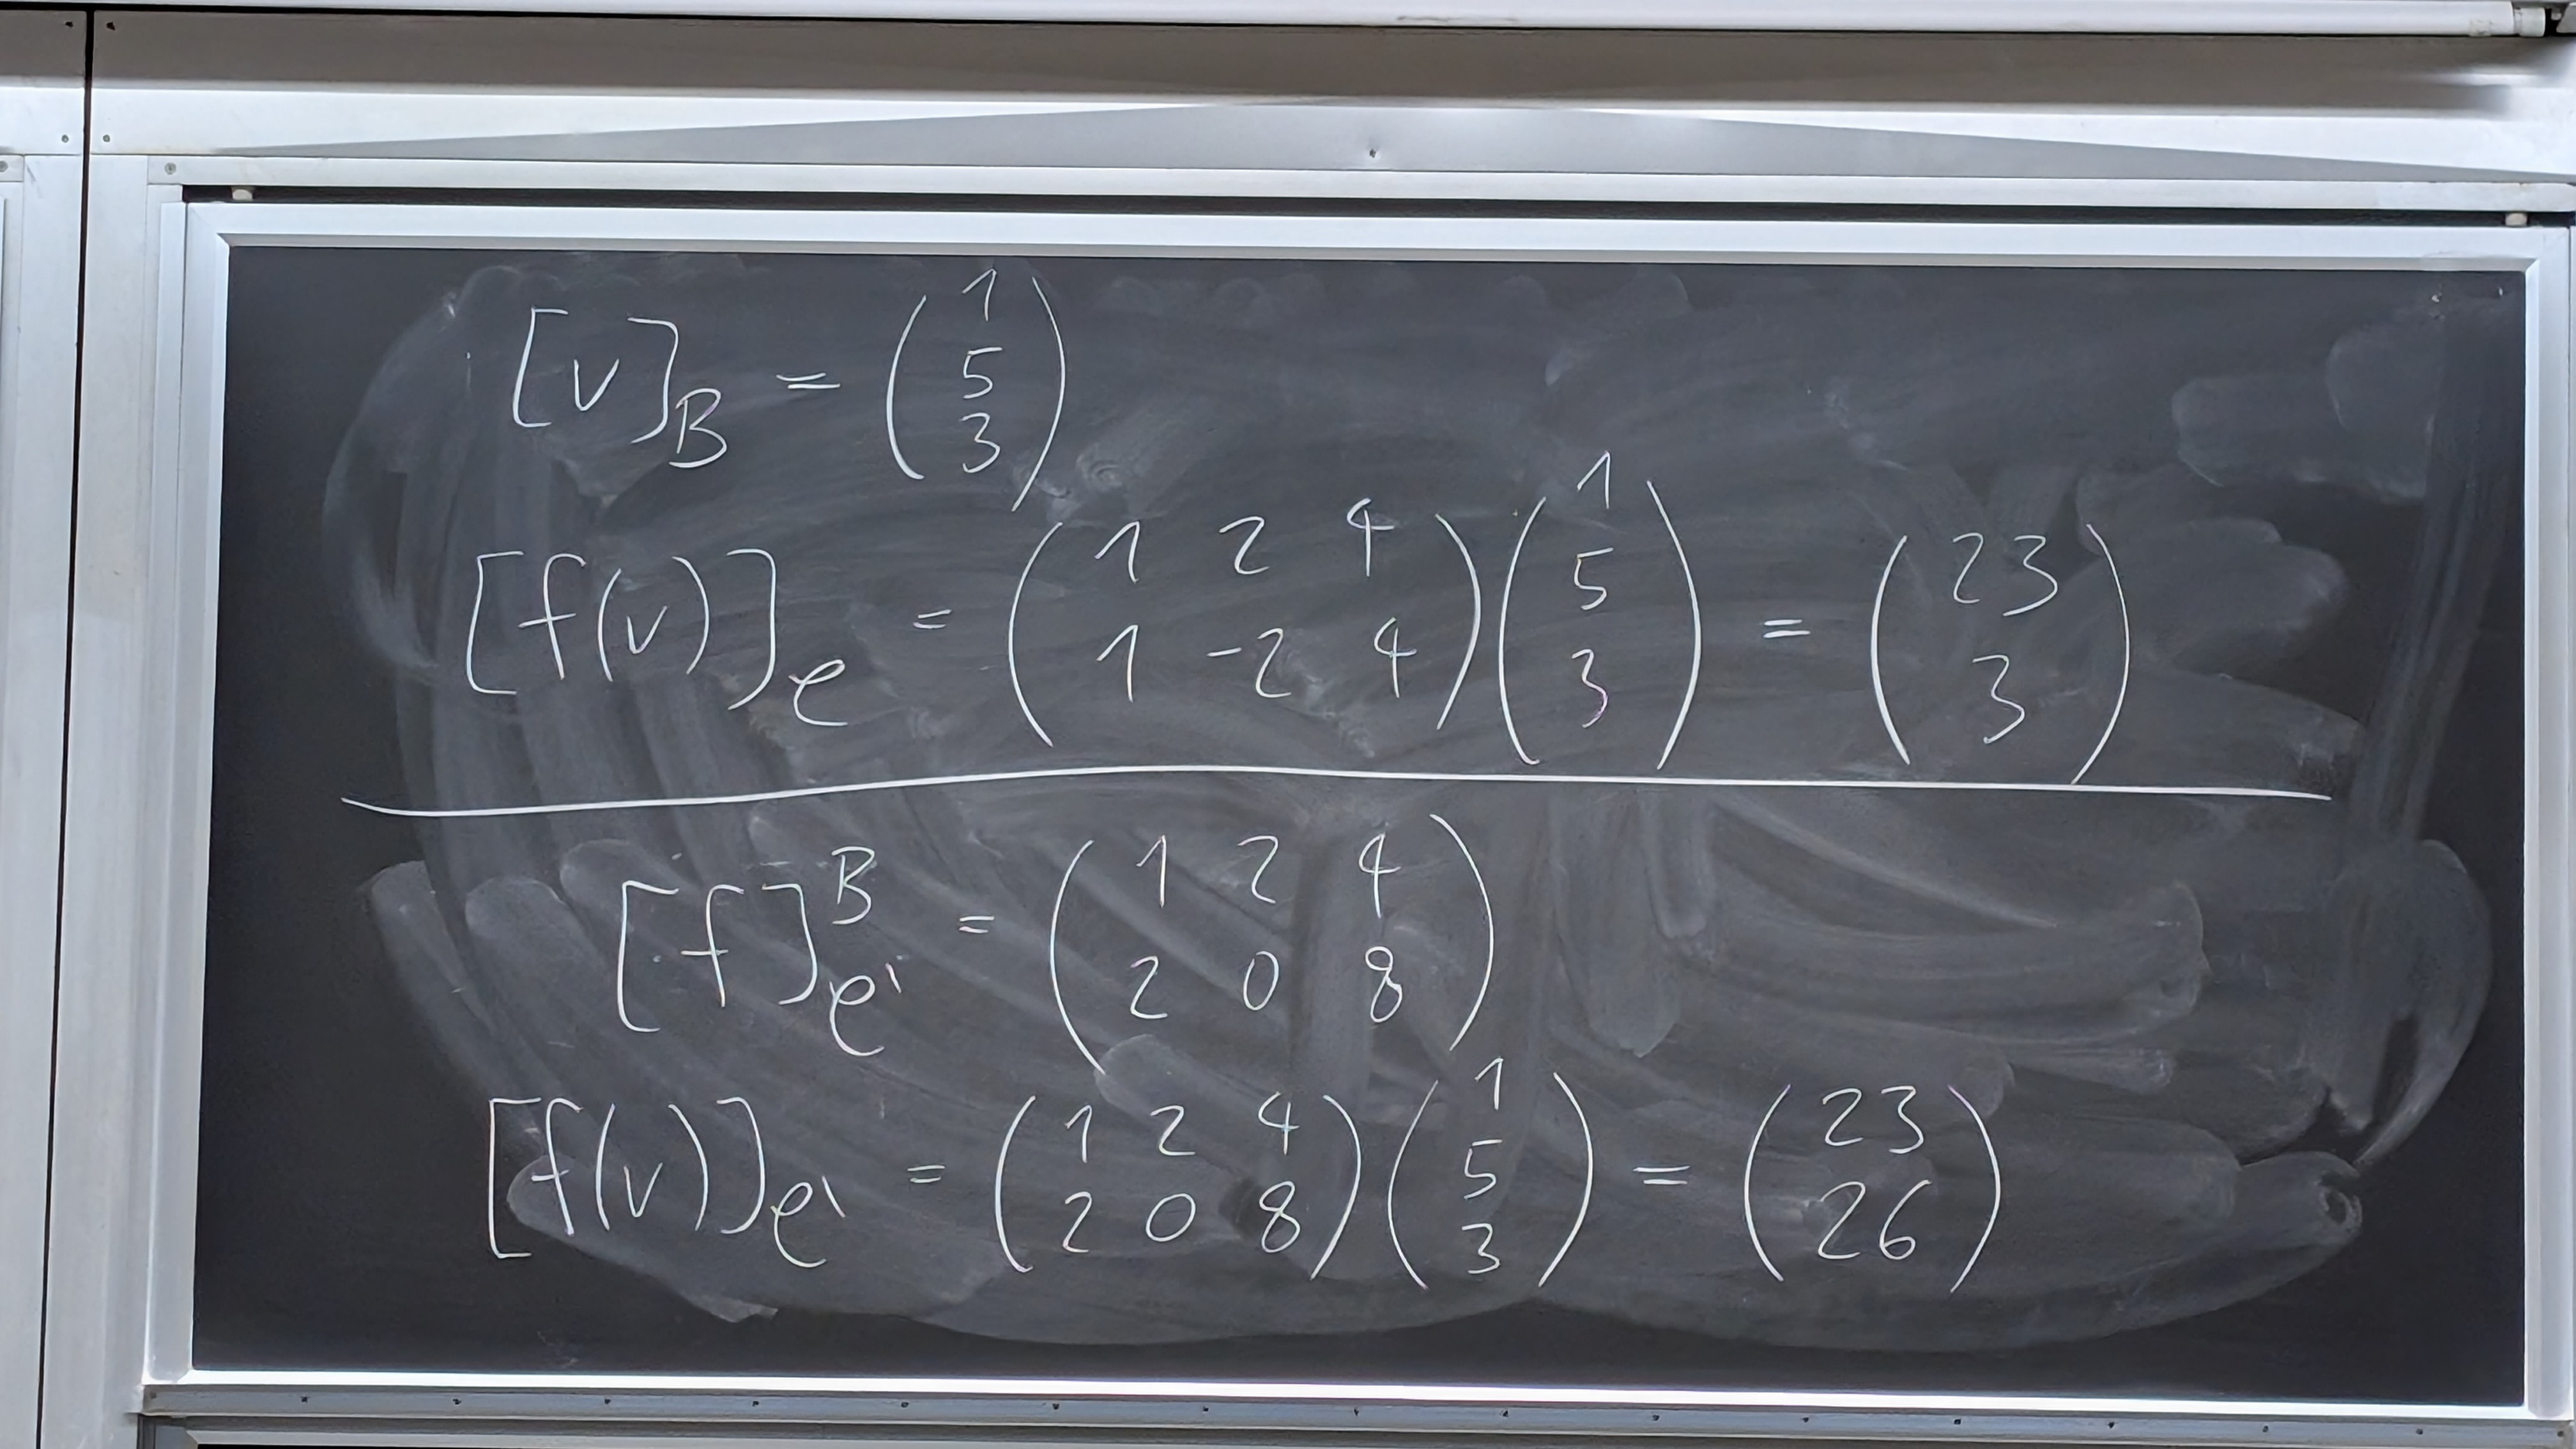 [v]_B = (1 5 3)
[f(v)]_e = (1 2 4 1 -2 4) (1 5 3) = (23 3)
[f]^B_e' = (1 2 4 2 0 8)
[f(v)]_e' = (1 2 4 2 0 8) (1 5 3) = (23 26)